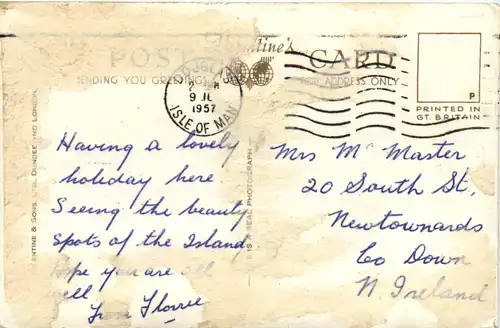 POST CARD
Valentine's
SENDING YOU GREETINGS
ADDRESS ONLY
DOUGLAS
9 JU
1957
ISLE OF MAN
P
PRINTED IN
GT. BRITAIN
VALENTINE & SONS, LTD., DUNDEE AND LONDON
THIS IS A REAL PHOTOGRAPH
Having a lovely
holiday here.
Seeing the beauty
spots of the Island
Hope you are all
well
from Florrie
Mrs McMaster
20 South St,
Newtownards
Co Down
N Ireland